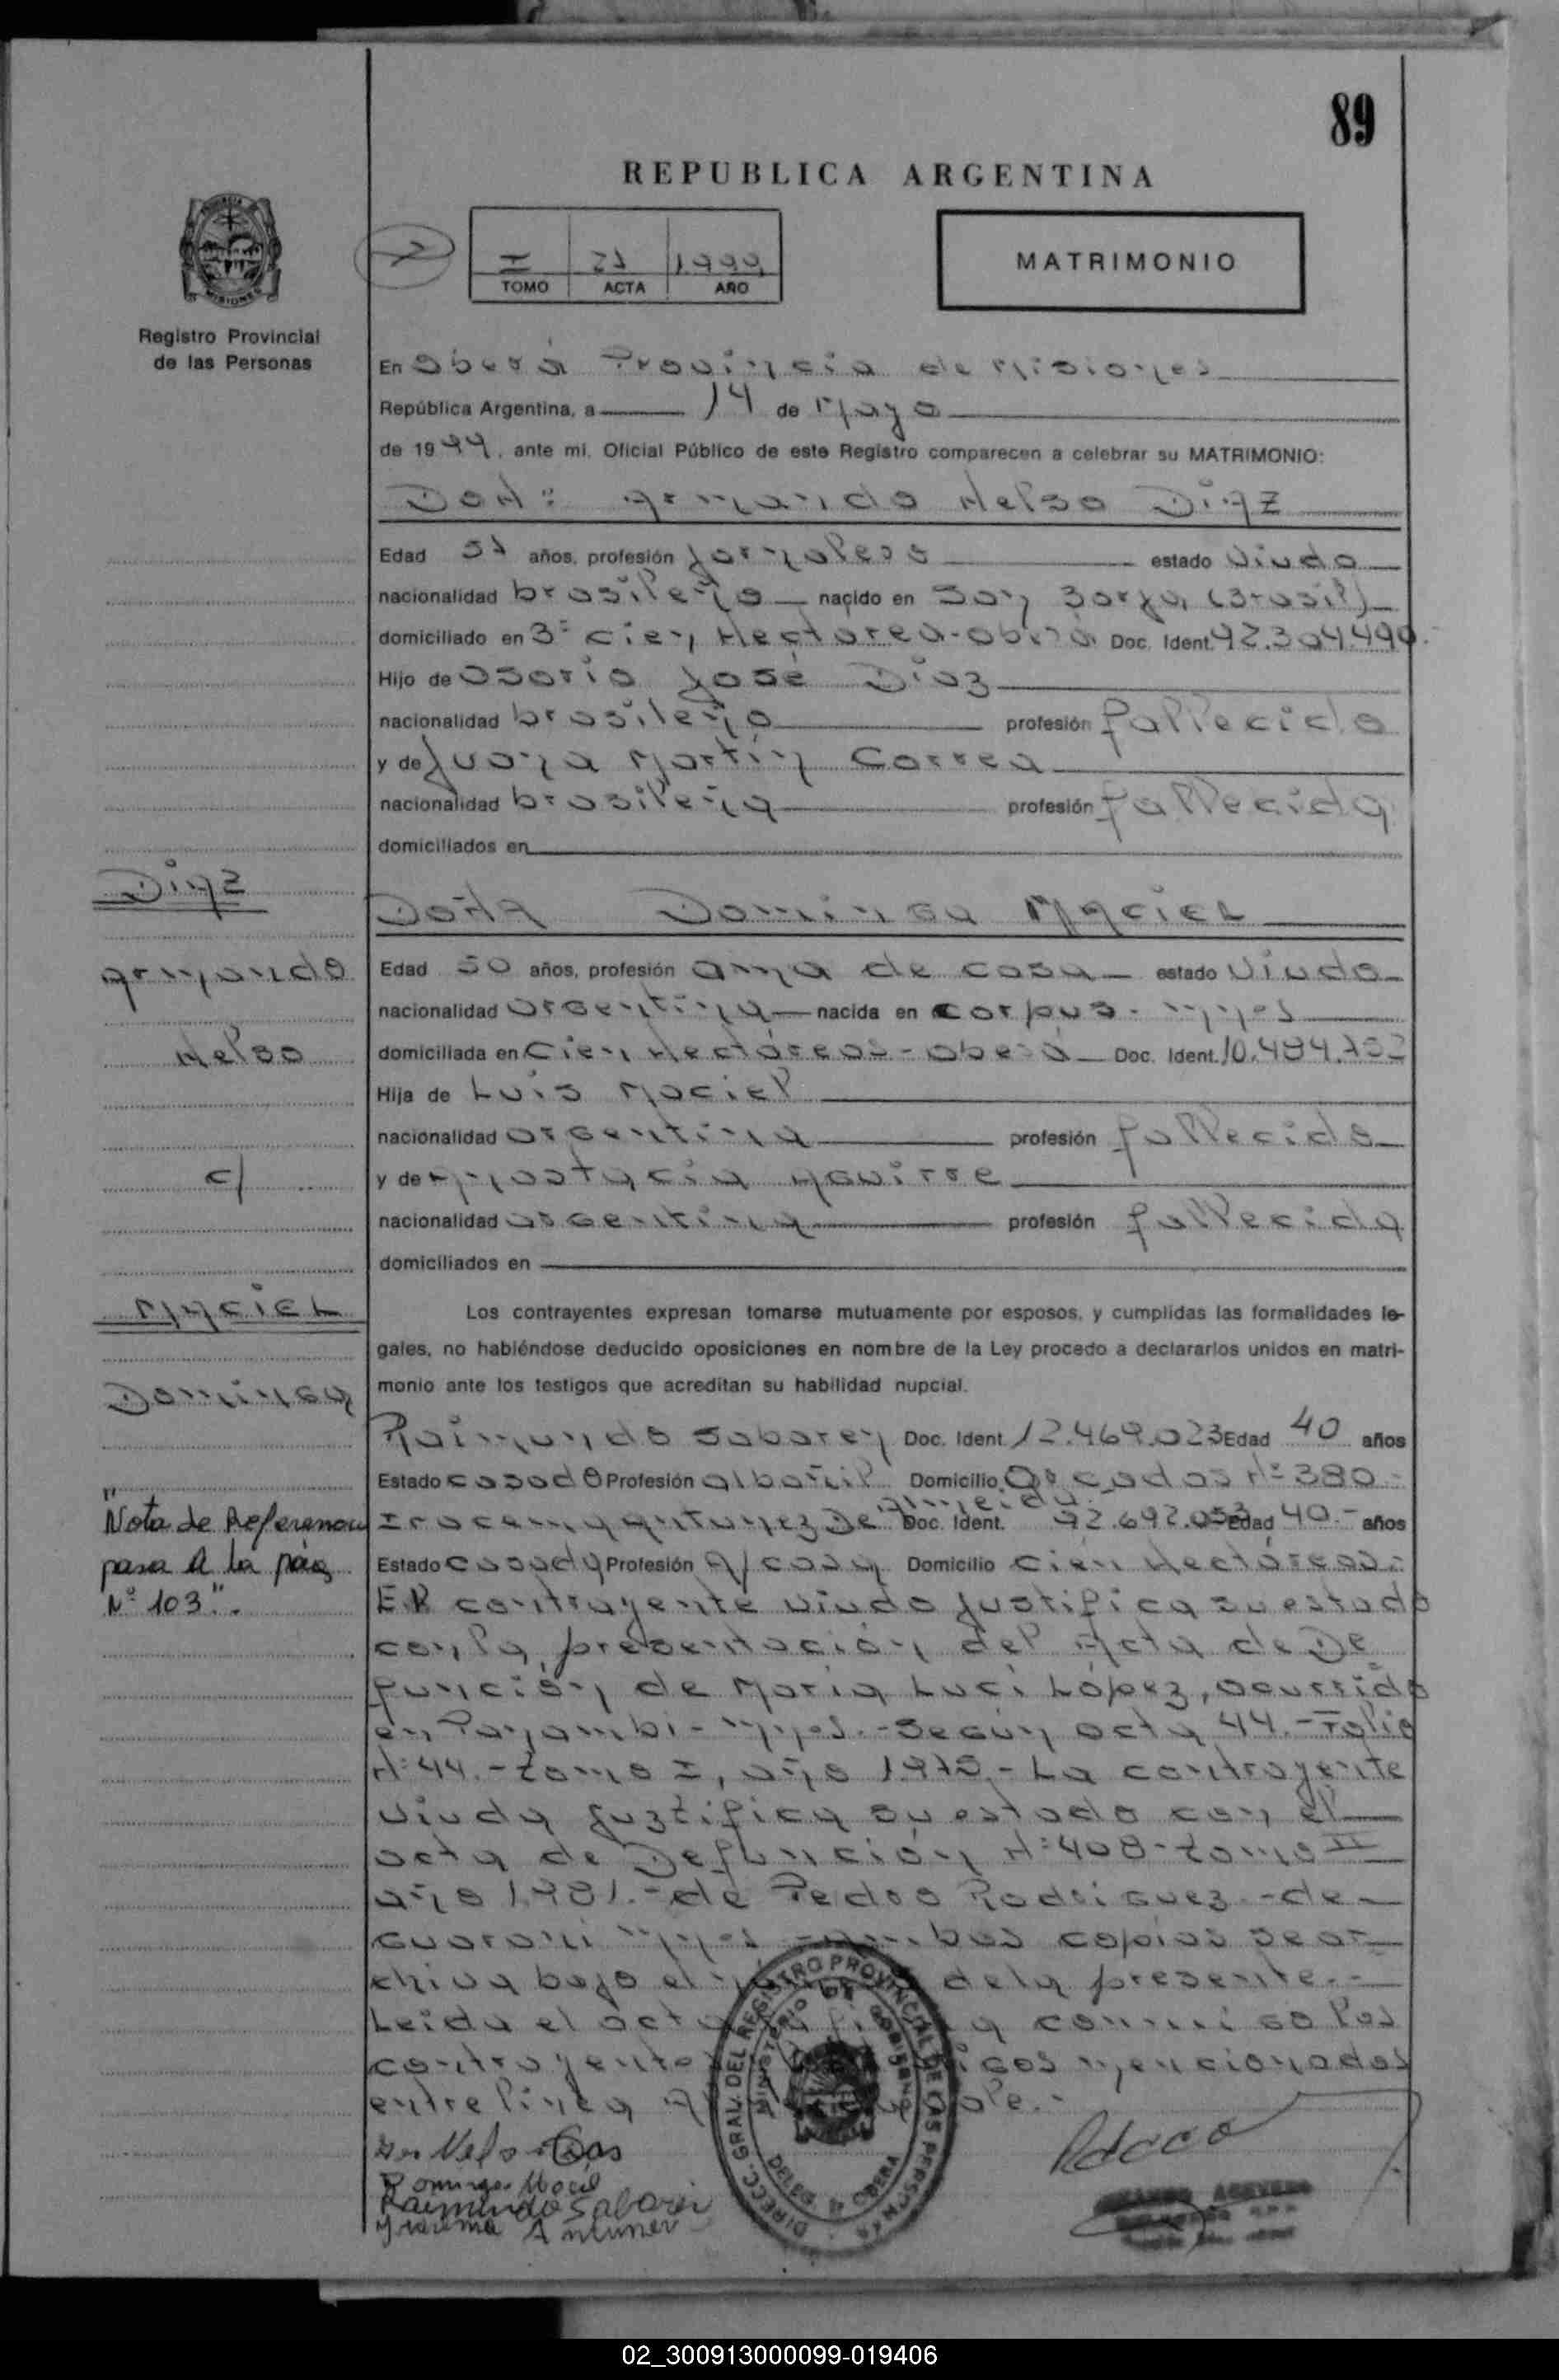 89
REPUBLICA ARGENTINA
MATRIMONIO
I 71 1999
TOMO ACTA AÑO
Registro Provincial
de las Personas
En Oberá Provincia de Misiones
República Argentina, a 14 de Mayo
de 1999, ante mi, Oficial Público de este Registro comparecen a celebrar su MATRIMONIO:
DON: Armando Nelso DIAZ
Edad años, profesión Jornalero estado Viudo
nacionalidad brasileño nacido en San Borja, (Brasil)
domiciliado en 3º cien Hectáreas-Oberá Doc. Ident. 92.304.490.-
Hijo de Osorio José Diaz
nacionalidad brasileño profesión fallecido
y de Juana Martín Correa
nacionalidad brasileña profesión fallecida
domiciliados en
DOÑA Dominga MACIEL
Edad 50 años, profesión ama de casa estado Viuda
nacionalidad argentina nacida en Corpus - Mnes
domiciliada en Cien Hectáreas - Oberá Doc. Ident. 10.484.
Hija de Luis Maciel
nacionalidad argentina profesión fallecido
y de Anastacia Aguirre
nacionalidad argentina profesión fallecida
domiciliados en
Los contrayentes expresan tomarse mutuamente por esposos, y cumplidas las formalidades le-
gales, no habiéndose deducido oposiciones en nombre de la Ley procedo a declararlos unidos en matri-
monio ante los testigos que acreditan su habilidad nupcial.
Raimundo Sabarey Doc. Ident. 12.469.023 Edad 40 años
Estado casado Profesión albañil Domicilio Nº 380.-
Almeida
Iracema Antunez De Doc. Ident. 92.692.053 Edad 40.- años
Estado casada Profesión A/casa Domicilio cien Hectáreas.-
El contrayente viudo justifica su estado
con la presentación del Acta de De
función de Maria Luci López, ocurrida
en Panambi - Mnes.- Según acta 44.- Folio
Nº 44.- tomo I, año 1975.- La contrayente
viuda justifica su estado con el
acta de Defunción Nº 408 - tomo II
año 1981.- de Pedro Rodriguez.- de
Guarani Mnes ambas copias se ar-
chiva bajo el de la presente.-
Leida el acta conmigo los
contrayentes mencionados
entre linea vale.-
Diaz
Armando
Nelso
c/
MACIEL
Dominga
"Nota de Referencia
pasa A la pág
Nº 103".
Nelso Dias
Dominga Maciel
Raimundo Sabarei
Iracema Antunes
DIRECC. GRAL. DEL REGISTRO PROVINCIAL DE LAS PERSONAS
MINISTERIO DE GOBIERNO
DELEG. OBERA
ACEVEDO
02_300913000099-019406